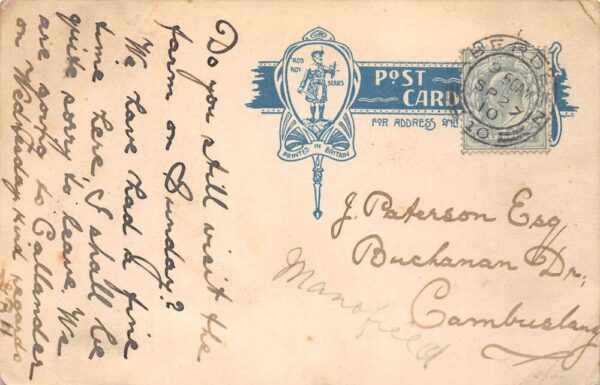 Do you still visit the
farm on Sunday?
We have had a fine
time here. I shall be
quite sorry to leave. We
are going to Callander
on Wednesday. Kind regards
ROB
ROY
SERIES
PRINTED IN BRITAIN
POST
CARD
FOR ADDRESS ONLY
ABERDEEN
SP 27
10
J. Paterson Esq
Buchanan Dr.
Cambuslang
Manofield